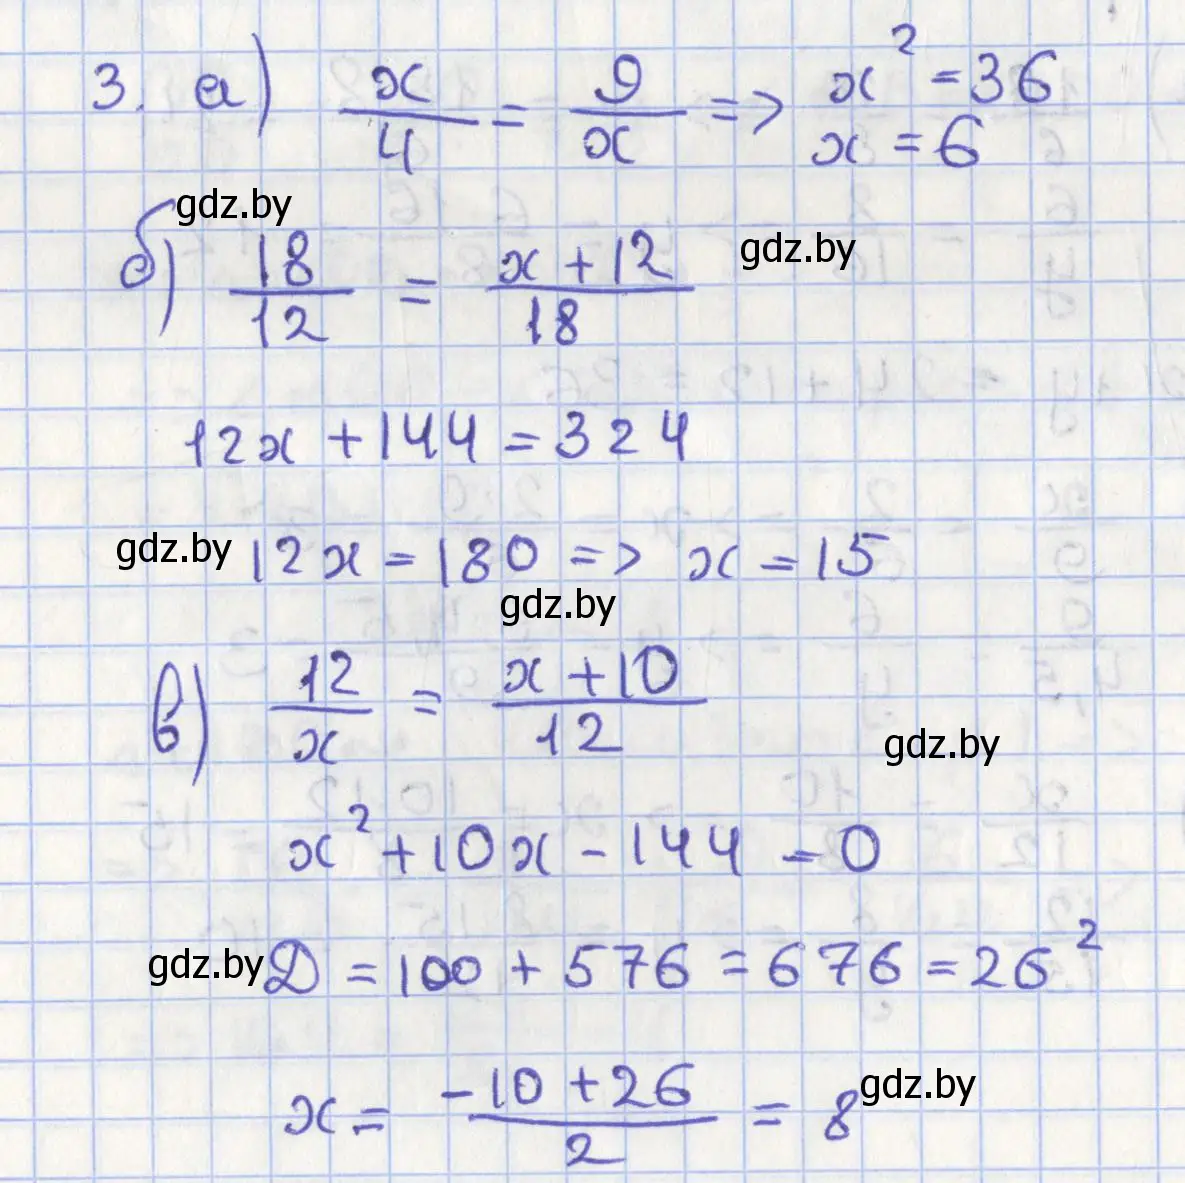 3. а) x/4 = 9/x => x² = 36
x = 6
gdz.by
б) 18/12 = (x + 12)/18
gdz.by
12x + 144 = 324
gdz.by 12x = 180 => x = 15
gdz.by
в) 12/x = (x + 10)/12
gdz.by
x² + 10x - 144 = 0
gdz.by Д = 100 + 576 = 676 = 26²
x = (-10 + 26)/2 = 8
gdz.by